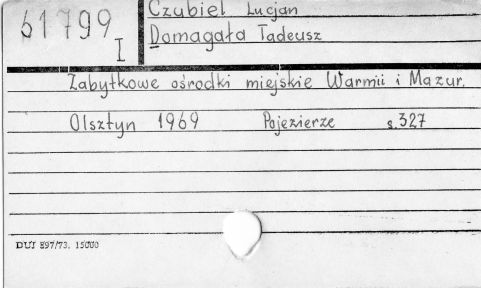 61799
I
Czubiel Lucjan
Domagała Tadeusz
Zabytkowe ośrodki miejskie Warmii i Mazur.
Olsztyn 1969 Pojezierze s.327
DUJ 897/73. 15000